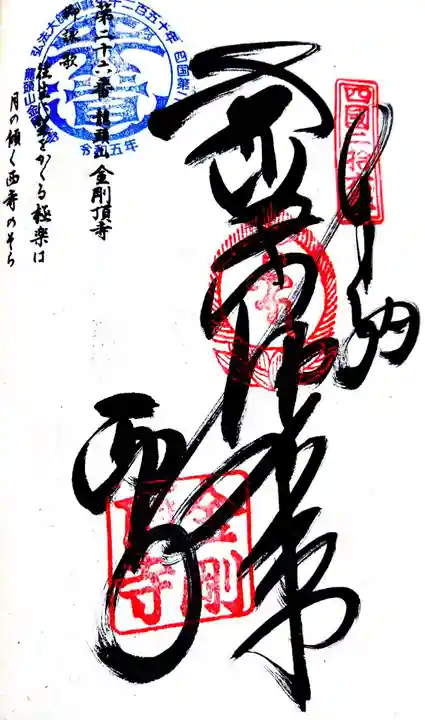 四国二拾六番
奉納
薬師如来
西寺
金剛
頂寺
弘法大師
二百五十年
四国第
龍頭山
令和五年
第二十六番 龍頭山 金剛頂寺
御詠歌
往生に望をかくる極楽は
月の傾く西寺のそら